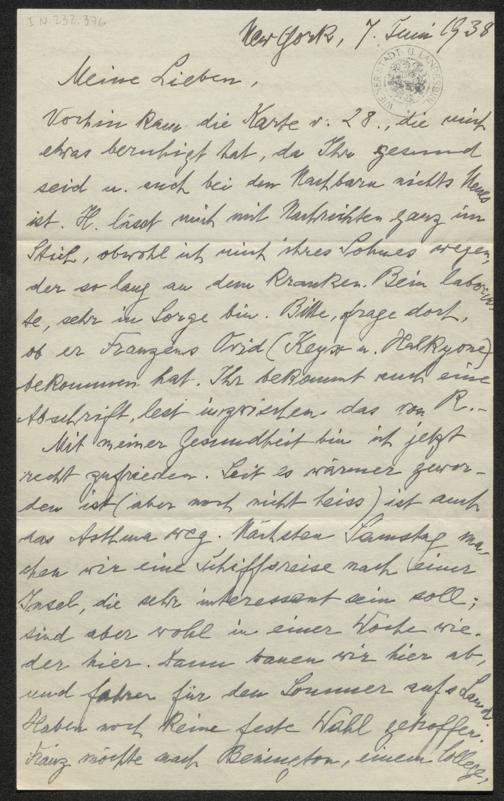 I.N. 232.376
New York, 7. Juni 1938
WIENER STADT- U. LANDESBIBL.
Meine Lieben,
Vorhin kam die Karte v. 28., die mich
etwas beruhigt hat, da Ihr gesund
seid u. auch bei den Nachbarn nichts Neues
ist. H. lässt mich mit Nachrichten ganz im
Stich, obwohl ich mich ihres Sohnes wegen,
der so lang an dem kranken Bein laborier-
te, sehr in Sorge bin. Bitte, frage dort,
ob er Franzens Ovid (Keyx u. Halkyone)
bekommen hat. Ihr bekommt auch eine
Abschrift, lest inzwischen das von R.-
Mit meiner Gesundheit bin ich jetzt
recht zufrieden. Seit es wärmer gewor-
den ist (aber noch nicht heiss) ist auch
das Asthma weg. Nächsten Samstag ma-
chen wir eine Schiffsreise nach einer
Insel, die sehr interessant sein soll;
sind aber wohl in einer Woche wie-
der hier. Dann bauen wir hier ab,
und fahren für den Sommer aufs Land.
Haben noch keine feste Wahl getroffen.
Franz möchte nach Benington, einem College,